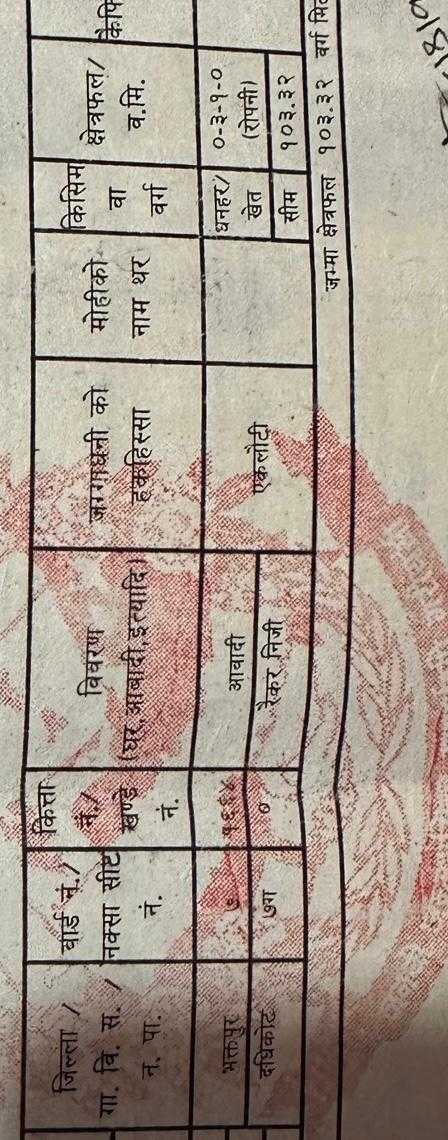 जिल्ला /
गा. वि. स. /
न. पा.
वार्ड नं./
नक्सा सीट
नं.
कित्ता
नं./
खण्डे
नं.
विवरण
(घर, आबादी, इत्यादि)
जग्गाधनी को
हकहिस्सा
मोहीको
नाम थर
किसिम
वा
वर्ग
क्षेत्रफल/
व.मि.
भक्तपुर
७
१६६४
आवादी
एकलौटी
धनहर/
खेत
०-३-१-०
(रोपनी)
दधिकोट
७ग
०
रैकर निजी
सीम
१०३.३२
जम्मा क्षेत्रफल १०३.३२ वर्ग